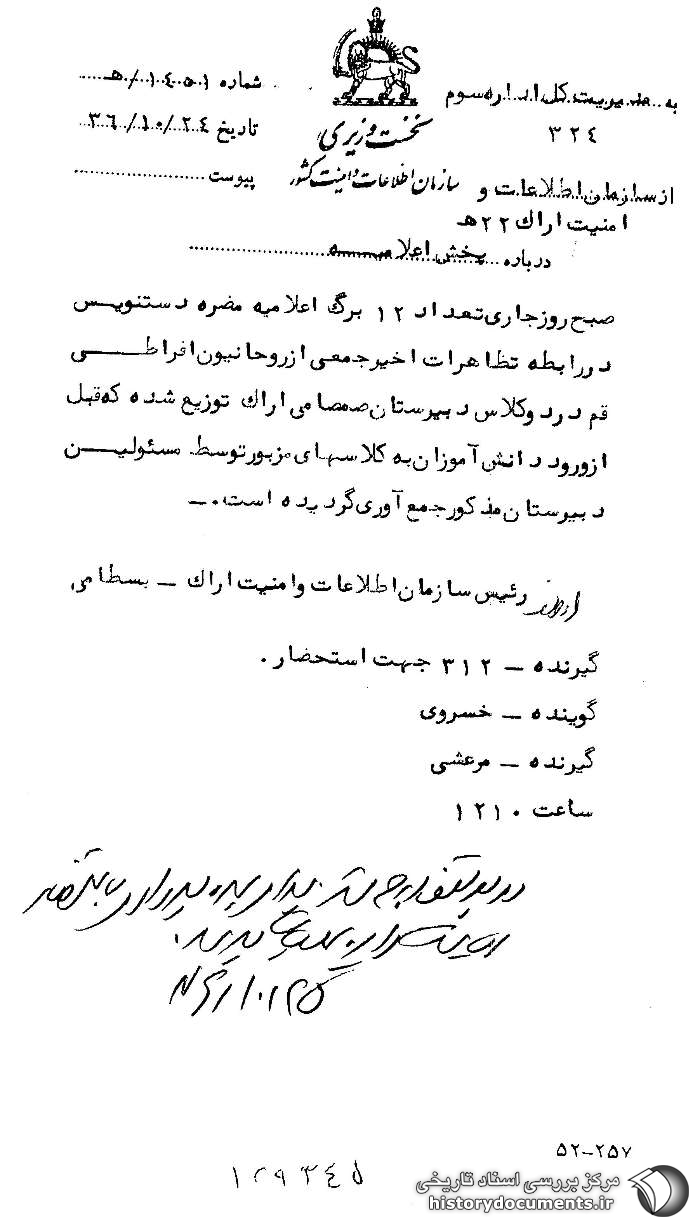 به مدیریت کل اداره سوم
۳۲۴
نخست وزیری
سازمان اطلاعات و امنیت کشور
شماره ۱۴۵۰۱/ه
تاریخ ۳۶/۱۰/۲۴
پیوست
از سازمان اطلاعات و
امنیت اراک ۲۲ه
درباره پخش اعلامیه
صبح روز جاری تعداد ۱۲ برگ اعلامیه مضره دستنویس
در رابطه تظاهرات اخیر جمعی از روحانیون افراطی
قم در دو کلاس دبیرستان صمصامی اراک توزیع شده که قبل
از ورود دانش آموزان به کلاسهای مزبور توسط مسئولین
دبیرستان مذکور جمع آوری گردیده است.ـ
رئیس سازمان اطلاعات و امنیت اراک ـ بسطامی
گیرنده ـ ۳۱۲ جهت استحضار.
گوینده ـ خسروی
گیرنده ـ مرعشی
ساعت ۱۲۱۰
۵۲-۲۵۷
مرکز بررسی اسناد تاریخی
historydocuments.ir